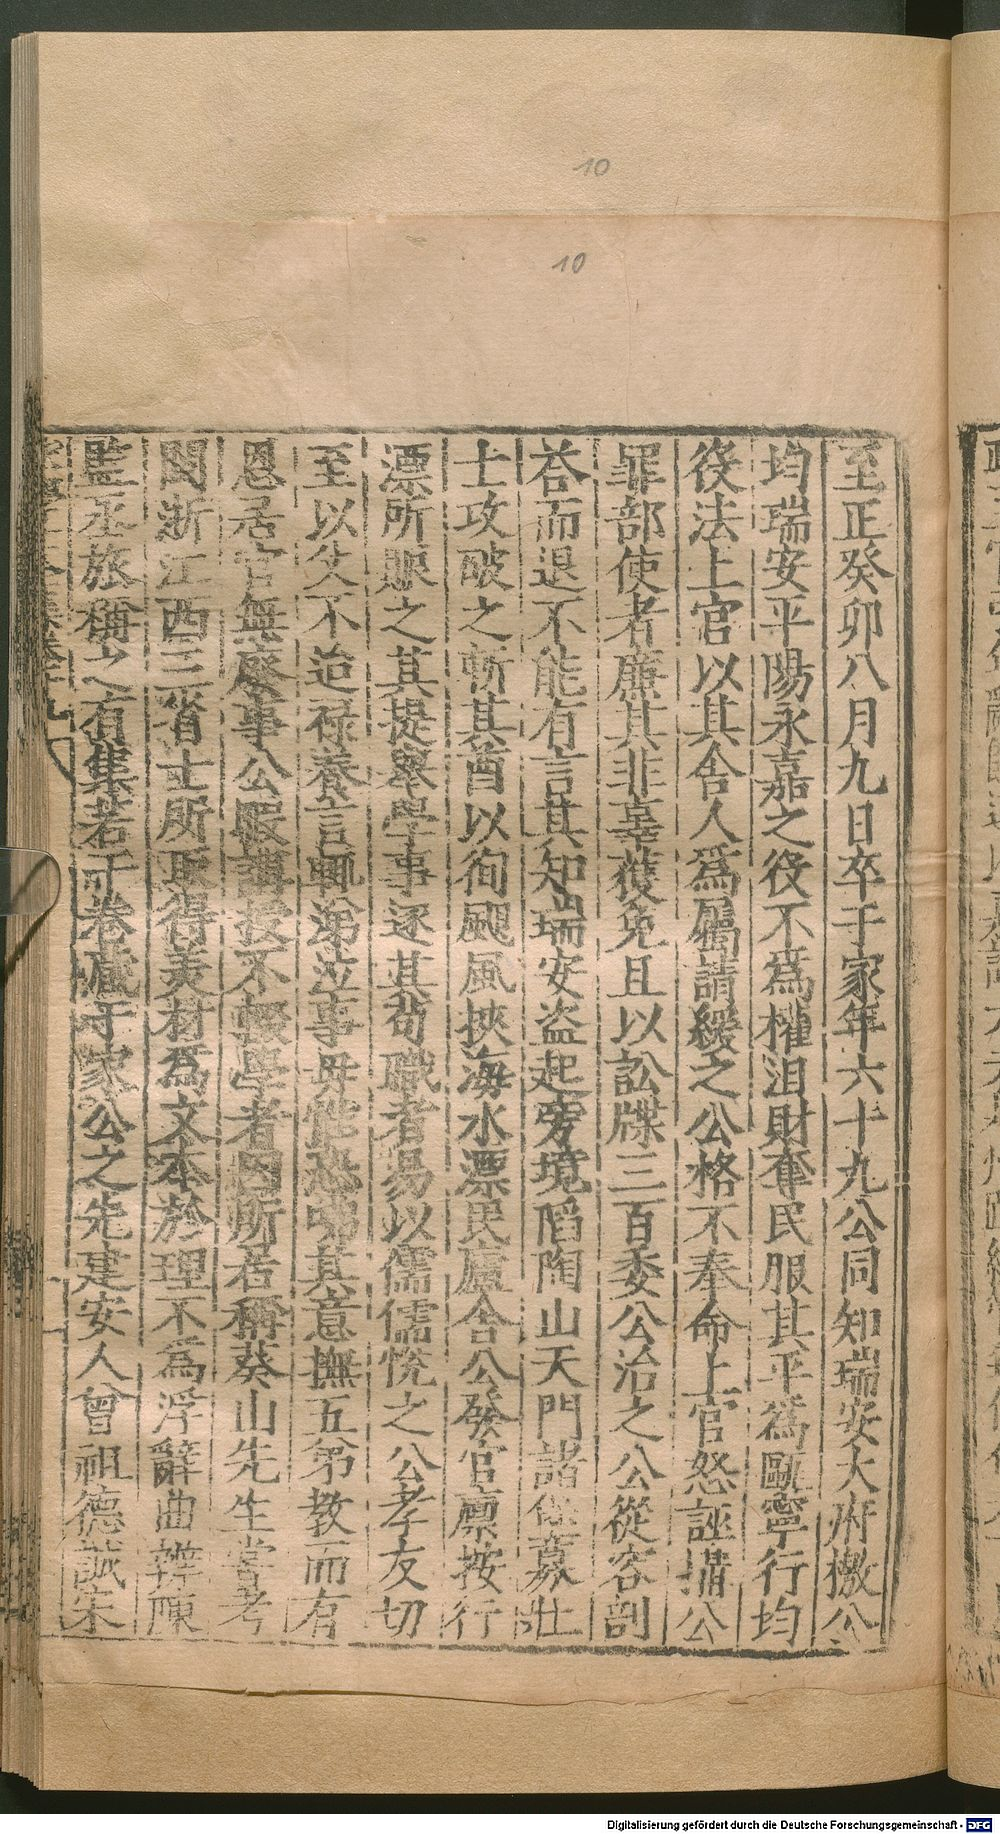 10
10
至正癸卯八月九日卒于家年六十九公同知瑞安大府檄公
均瑞安平陽永嘉之役不爲權沮財奪民服其平爲甌寧行均
役法上官以其舍人爲屬請緩之公格不奉命上官怒誣搆公
罪部使者廉其非辜獲免且以訟牒三百委公治之公從容剖
荅而退不能有言其知瑞安盗起旁境陷陶山天門諸保募壯
士攻破之斬其酋以徇颶風挾海水漂民廬舍公發官廩按行
漂所賑之其提舉學事逐其苟職者易以儒儒悅之公孝友切
至以父不迨禄養言輒涕泣事母能恐咈其意撫五弟教而有
恩居官無廢事公暇講授不輟學者因所居稱葵山先生嘗考
閩浙江西三省士所取得美材爲文本於理不爲浮辭曲辨陳
監丞旅稱之有集若干卷藏于家公之先建安人曾祖德誠宋
Digitalisierung gefördert durch die Deutsche Forschungsgemeinschaft - DFG